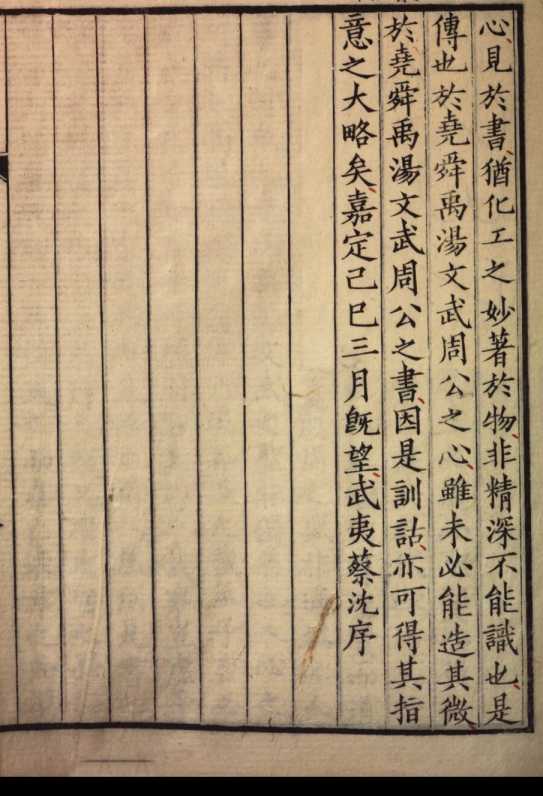 心見於書猶化工之妙著於物非精深不能識也是
傳也於堯舜禹湯文武周公之心雖未必能造其微
於堯舜禹湯文武周公之書因是訓詁亦可得其指
意之大略矣嘉定己巳三月旣望武夷蔡沈序